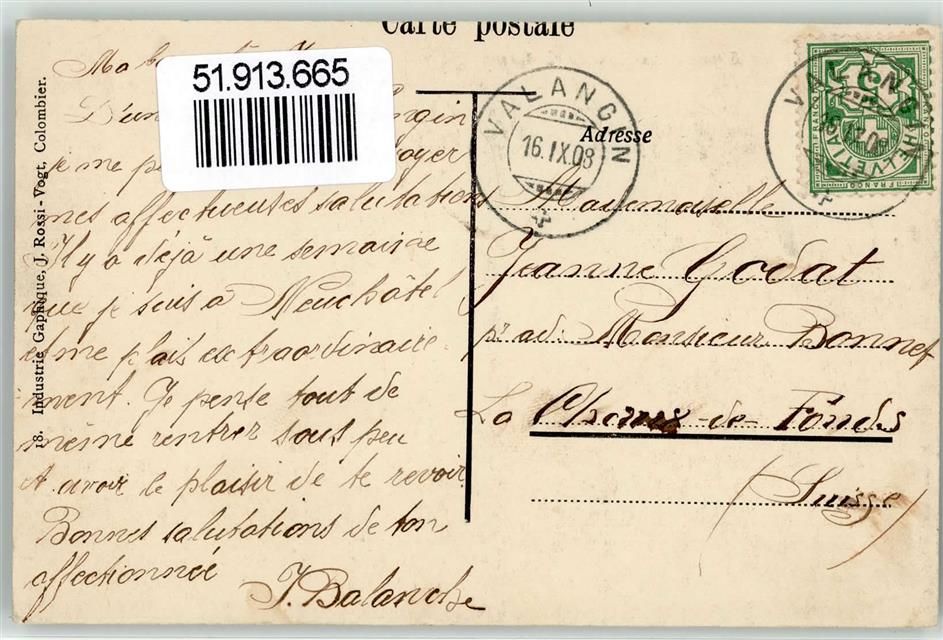 Carte postale
51.913.665
18. Industrie Gaphique, J. Rossi-Vogt, Colombier.
VALANGIN
16.IX.08
Adresse
VALANGIN
16.IX.08
HELVETIA
FRANCO
Ma
D'un
je me
mes affectueuses salutations
Il y a déjà une semaine
que je suis à Neuchâtel
et me plais extraordinaire-
ment. Je pense tout de
même rentrer sous peu
et avoir le plaisir de te revoir
Bonnes salutations de ton
affectionnée
J. Balanche
Mademoiselle
Jeanne Godat
pr ad. Monsieur Bonnet
La Chaux-de-Fonds
(Suisse)